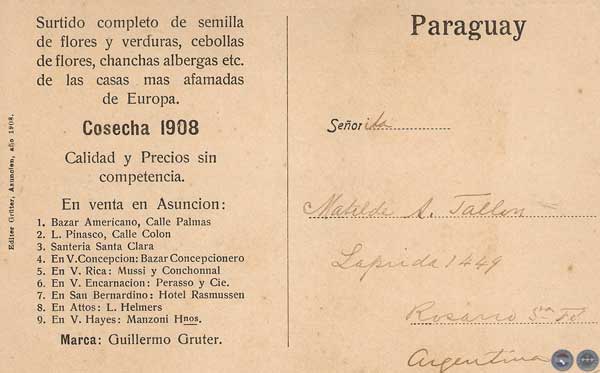 Surtido completo de semilla
de flores y verduras, cebollas
de flores, chanchas albergas etc.
de las casas mas afamadas
de Europa.
Cosecha 1908
Calidad y Precios sin
competencia.
En venta en Asuncion:
1. Bazar Americano, Calle Palmas
2. L. Pinasco, Calle Colon
3. Santeria Santa Clara
4. En V. Concepcion: Bazar Concepcionero
5. En V. Rica: Mussi y Conchonnal
6. En V. Encarnacion: Perasso y Cie.
7. En San Bernardino: Hotel Rasmussen
8. En Attos: L. Helmers
9. En V. Hayes: Manzoni Hnos.
Marca: Guillermo Gruter.
Editor Grüter, Asuncion, año 1908.
Paraguay
Señorita
Matilde A. Tallon
Laprida 1449
Rosario Sta Fé
Argentina